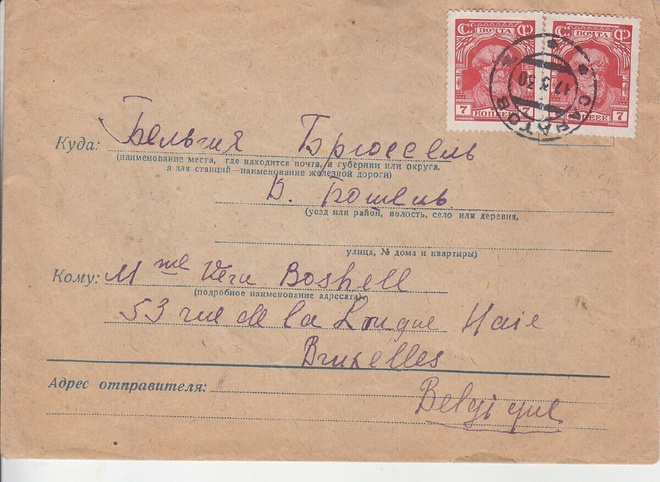 С ПОЧТА Ф С ПОЧТА Ф
7 КОПЕЕК 7 7 КОПЕЕК 7
САРАТОВ
17.3.30
Куда: Бельгия Брюссель
(наименование места, где находится почта, и губернии или округа,
а для станций—наименование железной дороги)
В. Бошель
(уезд или район, волость, село или деревня,
улица, № дома и квартиры)
Кому: Mme Vera Boshell
(подробное наименование адресата)
53 rue de la Longue Haie
Bruxelles
Адрес отправителя:
Belgique